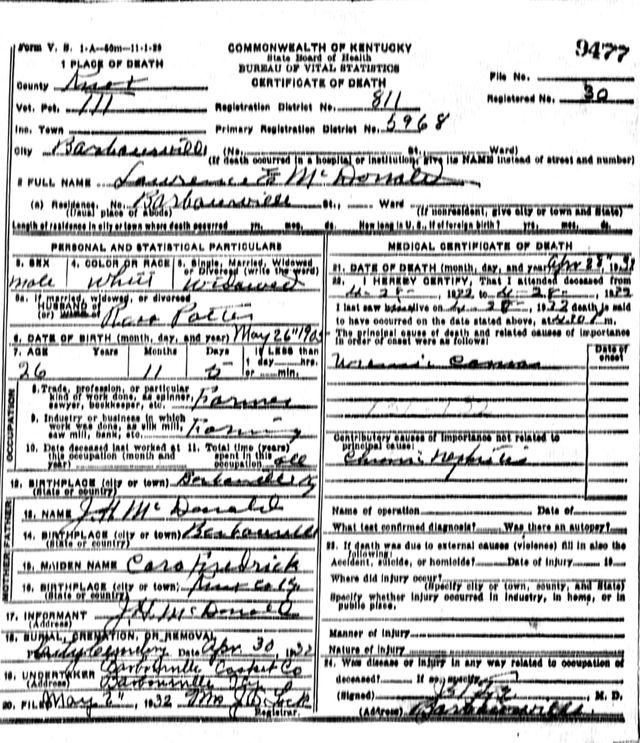 Form V. S. 1-A—50m—11-1-29
COMMONWEALTH OF KENTUCKY
State Board of Health
BUREAU OF VITAL STATISTICS
CERTIFICATE OF DEATH
9477
1 PLACE OF DEATH
County Knox
File No.
Vot. Pct. 111
Registration District No. 811
Registered No. 30
Inc. Town
Primary Registration District No. 5968
City Barbourville (No. St., Ward)
(If death occurred in a hospital or institution, give its NAME instead of street and number)
2 FULL NAME Lawrence E McDonald
(a) Residence. No. Barbourville St., Ward
(Usual place of abode) (If nonresident, give city or town and State)
Length of residence in city or town where death occurred yrs. mos. ds. How long in U. S. if of foreign birth? yrs. mos. ds.
PERSONAL AND STATISTICAL PARTICULARS
3. SEX
male
4. COLOR OR RACE
White
5. Single, Married, Widowed or Divorced (write the word)
Widowed
5a. If married, widowed, or divorced
HUSBAND of
(or) WIFE of Potter
6. DATE OF BIRTH (month, day, and year) May 26" 1905
7. AGE Years Months Days If LESS than 1 day hrs. or min.
26 11
OCCUPATION
8. Trade, profession, or particular kind of work done, as spinner, sawyer, bookkeeper, etc. Farmer
9. Industry or business in which work was done, as silk mill, saw mill, bank, etc. Farming
10. Date deceased last worked at this occupation (month and year)
11. Total time (years) spent in this occupation all
12. BIRTHPLACE (city or town) Barbourville Ky
(State or country)
FATHER
13. NAME J H McDonald
14. BIRTHPLACE (city or town) Barbourville
(State or country)
MOTHER
15. MAIDEN NAME Cara Fredrick
16. BIRTHPLACE (city or town) Knox Co Ky
(State or country)
17. INFORMANT J H McDonald
(Address)
18. BURIAL, CREMATION, OR REMOVAL
Place Cemetery Date Apr 30, 1932
19. UNDERTAKER Barbourville Casket Co
(Address) Barbourville Ky
20. FILED May 2", 1932 Mrs J D Lock
Registrar.
MEDICAL CERTIFICATE OF DEATH
21. DATE OF DEATH (month, day, and year) Apr 28", 1932
22. I HEREBY CERTIFY, That I attended deceased from
4-28-, 1932 to 4-28-, 1932
I last saw h alive on 4-28, 1932 death is said
to have occurred on the date stated above, at m.
The principal cause of death and related causes of importance in order of onset were as follows:
Date of onset
Uremic Coma
Contributory causes of importance not related to principal cause:
Chronic Nephritis
Name of operation Date of
What test confirmed diagnosis? Was there an autopsy?
23. If death was due to external causes (violence) fill in also the following:
Accident, suicide, or homicide? Date of injury 19
Where did injury occur?
(Specify city or town, county, and State)
Specify whether injury occurred in industry, in home, or in public place.
Manner of injury
Nature of injury
24. Was disease or injury in any way related to occupation of
deceased? If so, specify
(Signed) M. D.
(Address) Barbourville